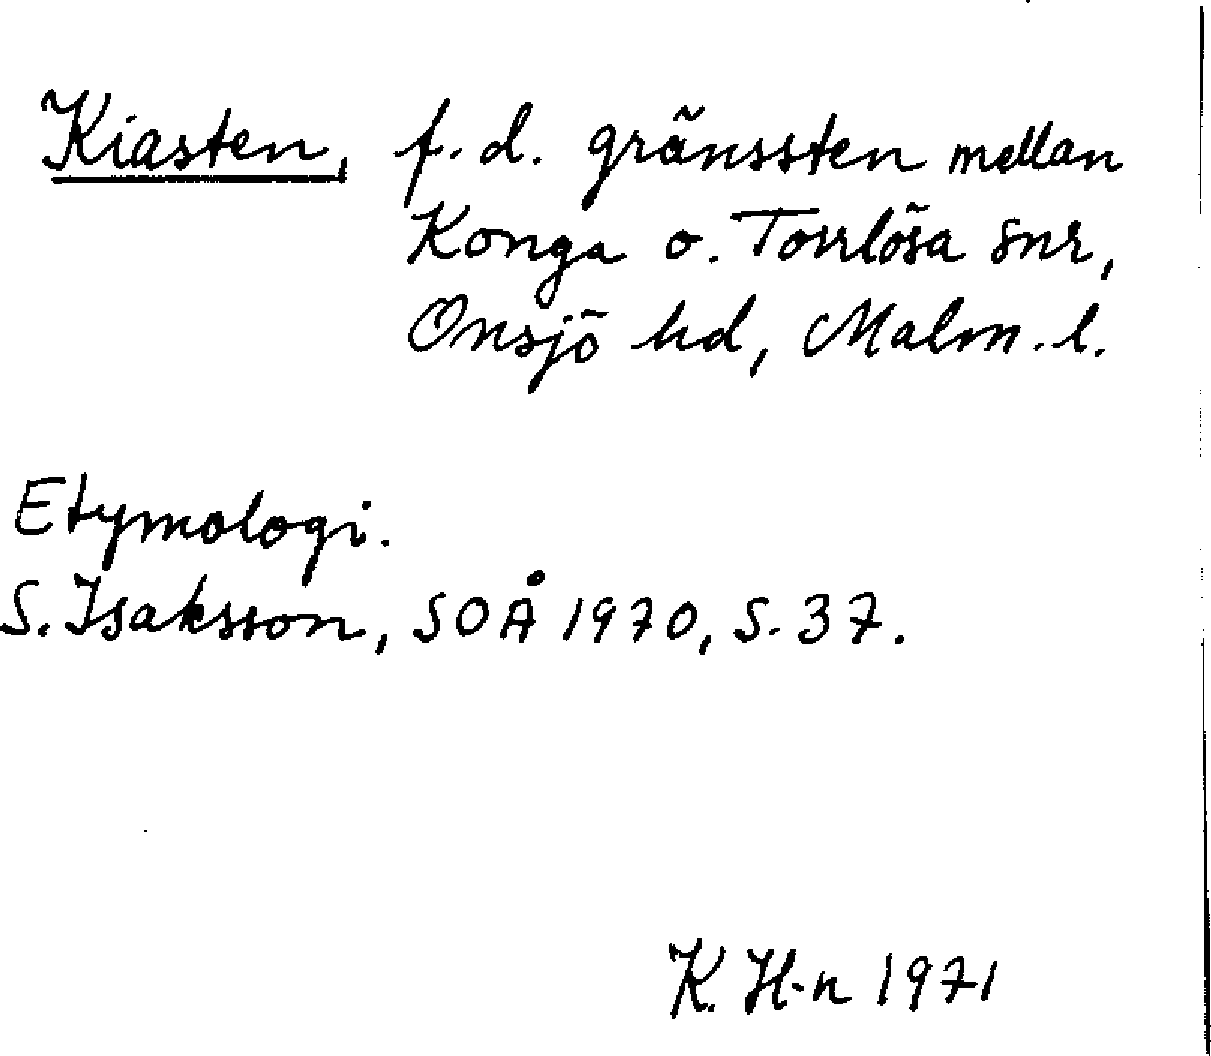 Kiasten, f.d. gränssten mellan
Konga o. Torrlösa snr,
Onsjö hd, Malm. l.
Etymologi.
S. Isaksson, SOÅ 1970, S. 37.
K. H-n 1971